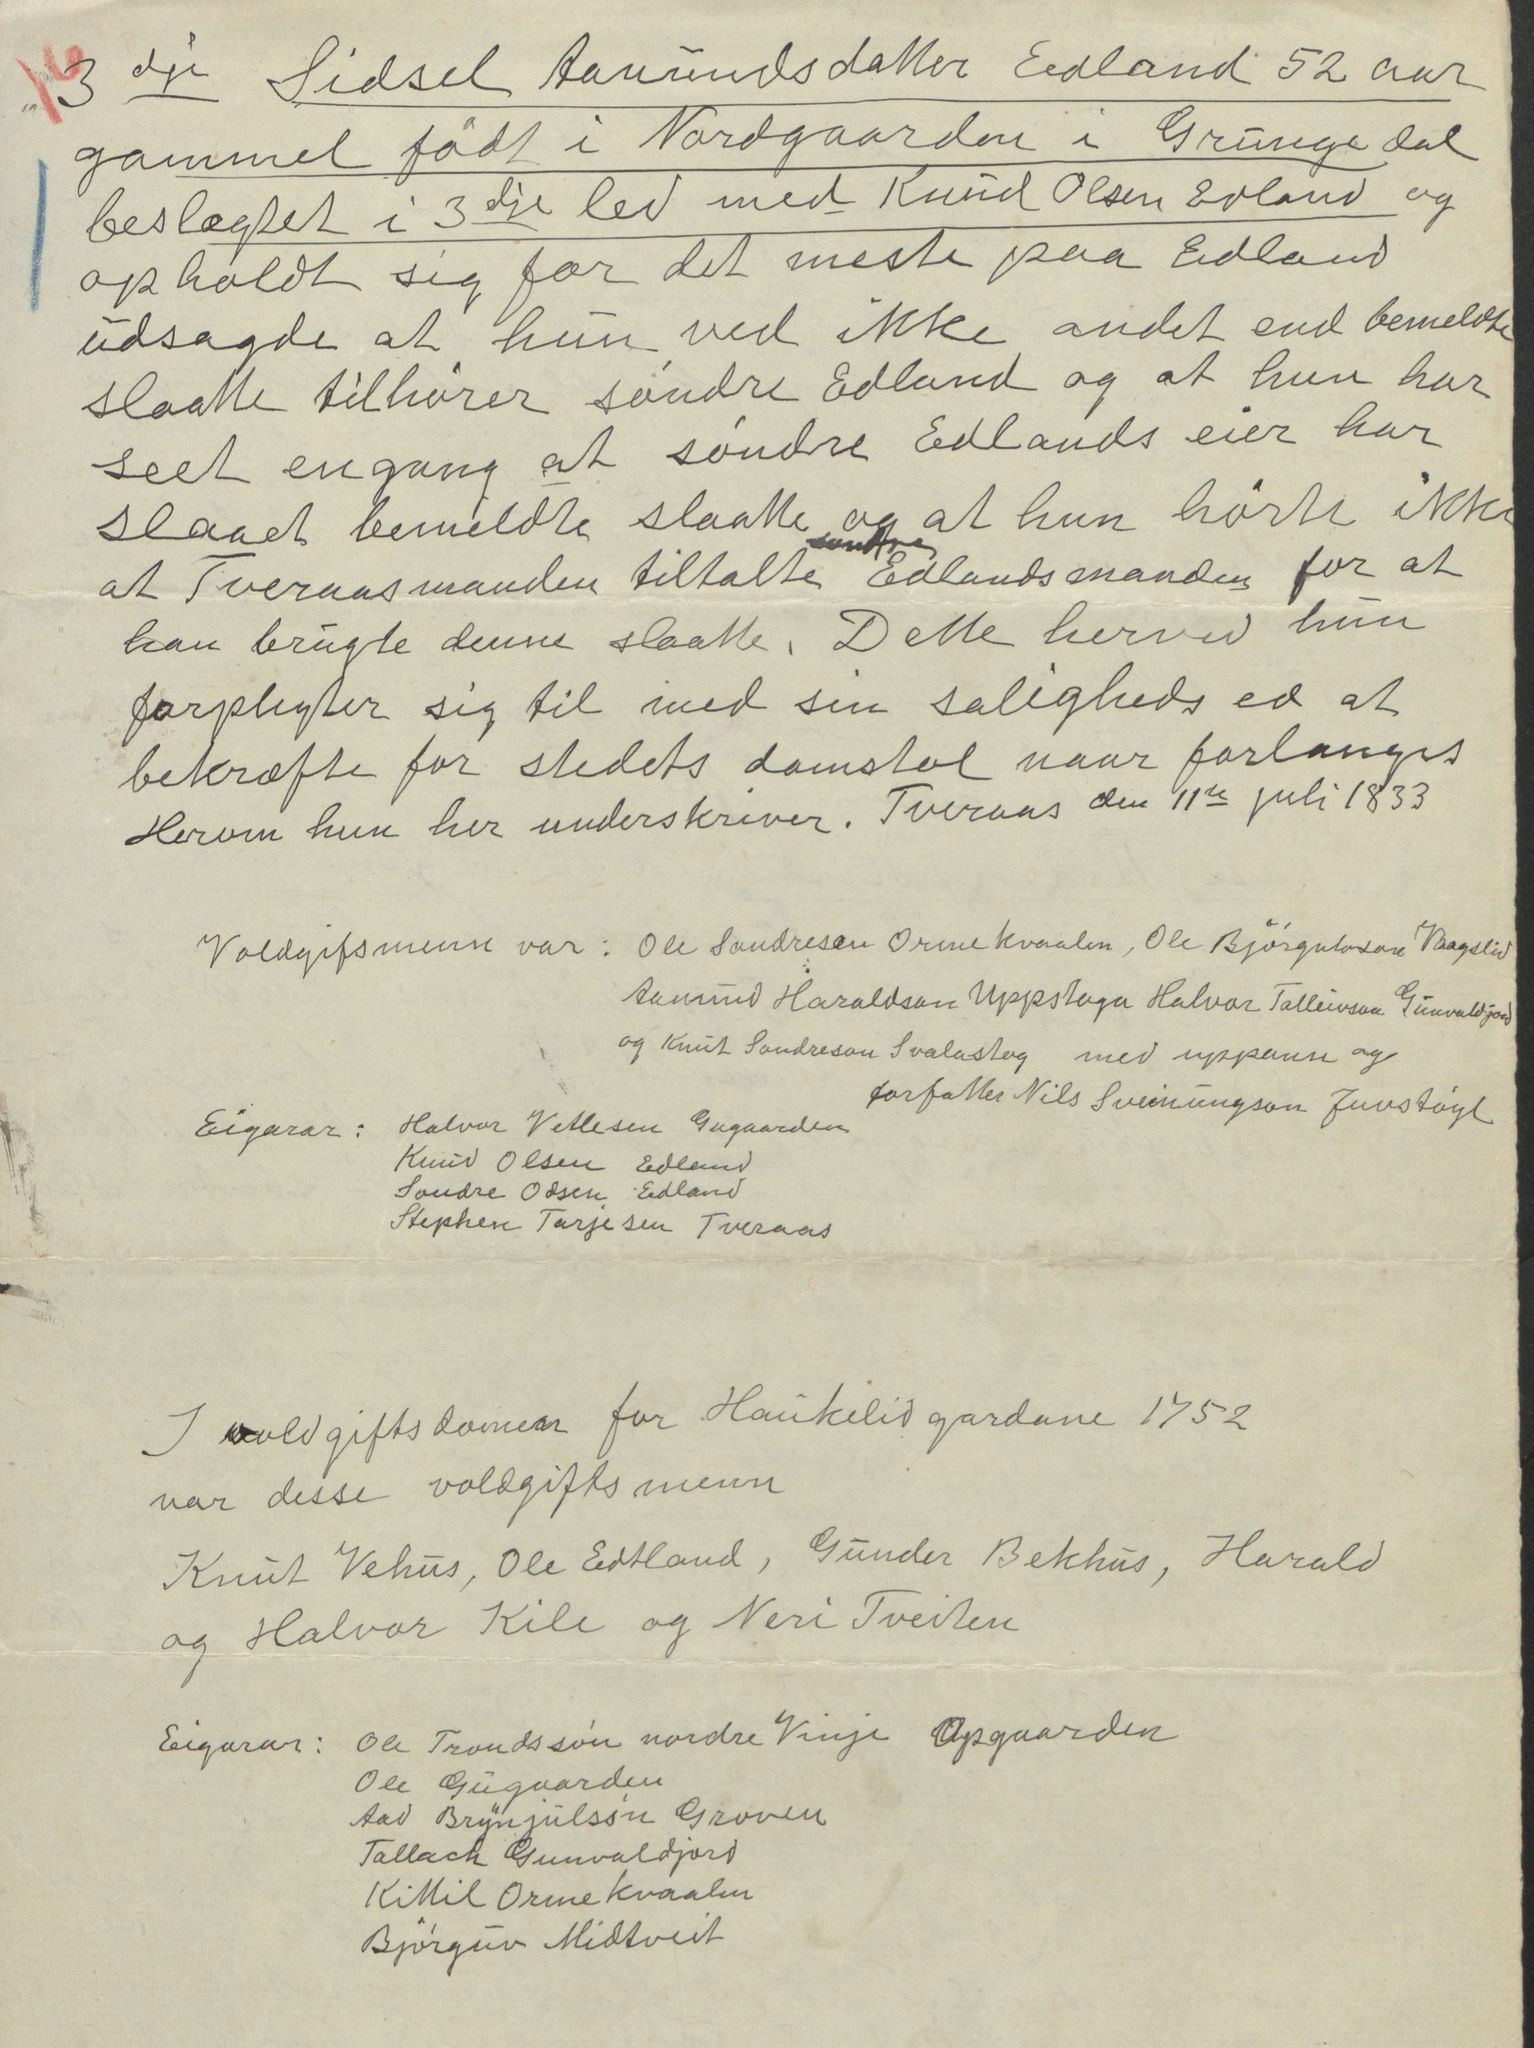 3 dje Sidsel Aamundsdatter Edland 52 aar
gammel født i Nordgaarden i Grungedal
beslægtet i 3dje led med Knud Olsen Edland og
opholdt sig for det meste paa Edland
udsagde at hun ved ikke andet end bemeldte
slaatte tilhører søndre Edland og at hun har
seet engang at søndre Edlands eier har
slaaet bemeldte slaatte og at hun hørte ikke
søndre
at Tveraasmanden tiltalte Edlandsmanden for at
han brugte denne slaatte. Dette herved hun
forpligter sig til med sin saligheds ed at
bekræfte for stedets domstol naar forlanges
Herom hun her underskriver. Tveraas den 11te juli 1833
Voldgifsmenn var: Ole Sondresen Ormekvaalen, Ole Bjørgulvson Vaagslid
Aamund Haraldson Uppstoga Halvor Tolleivson Gunvaldjord
og Knut Sondreson Svalastog med uppmann og
forfatter Nils Sveinungson Juvstøyl
Eigarar: Halvor Vetlesen Gugaarden
Knud Olsen Edland
Sondre Olsen Edland
Stephen Tarjesen Tveraas
I voldgiftsdomen for Haukelidgardane 1752
var desse voldgiftsmenn
Knut Vehus, Ole Edtland, Gunder Bekhus, Harald
og Halvor Kile og Neri Tveiten
Eigarar: Ole Trondssøn nordre Vinje Opgaarden
Ole Gugaarden
Aad Brynjulsøn Groven
Tallach Gunvaldjord
Kittil Ormekvaalen
Bjørguv Midtveit